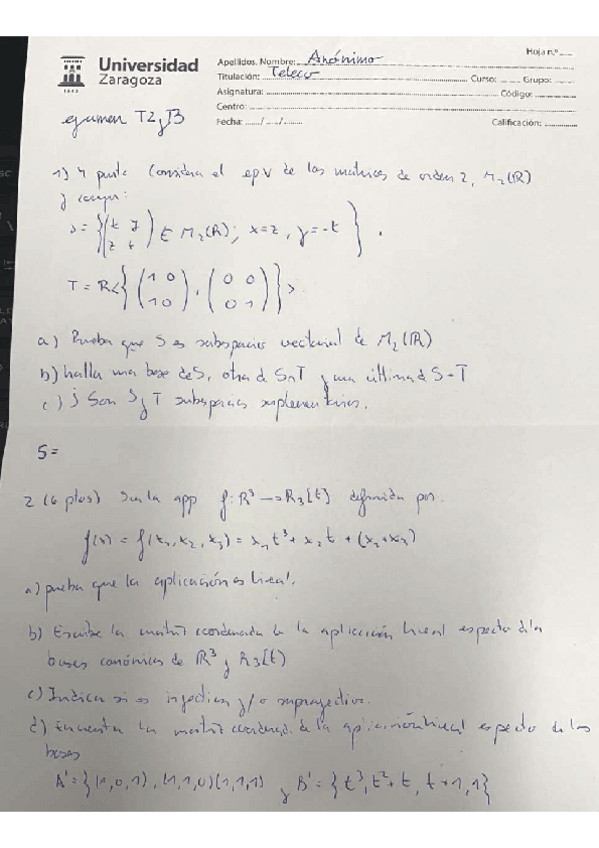 Hoja n.º
Universidad
Zaragoza
1542
Apellidos. Nombre: Anónimo
Titulación: Teleco Curso: Grupo:
Asignatura: Código:
Centro:
Fecha: / / Calificación:
examen T2 y T3
1) 4 punto Considera el epv de las matrices de orden 2, M₂(R)
y
S = {(x y / z t) ∈ M₂(R); x=z, y=-t}.
T = R<{(1 0 / 1 0), (0 0 / 0 1)}>
a) Prueba que S es subespacio vectorial de M₂(R)
b) halla una base de S, otra de S∩T y una última de S+T
c) ¿Son S y T subespacios suplementarios.
S=
2 (6 ptos) Sea la app f: R³ → R₃[t] definida por:
f(x) = f(x₁, x₂, x₃) = x₁t³ + x₂t + (x₂+x₃)
a) prueba que la aplicación es lineal.
b) Escribe la matriz coordenada de la aplicación lineal respecto de las
bases canónicas de R³ y R₃[t]
c) Indica si es inyectiva y/o suprayectiva.
d) Encuentra la matriz coordenada de la aplicación lineal respecto de las
bases
A' = {(1,0,1), (1,1,0)(1,1,1)} y B' = {t³, t²+t, t+1, 1}